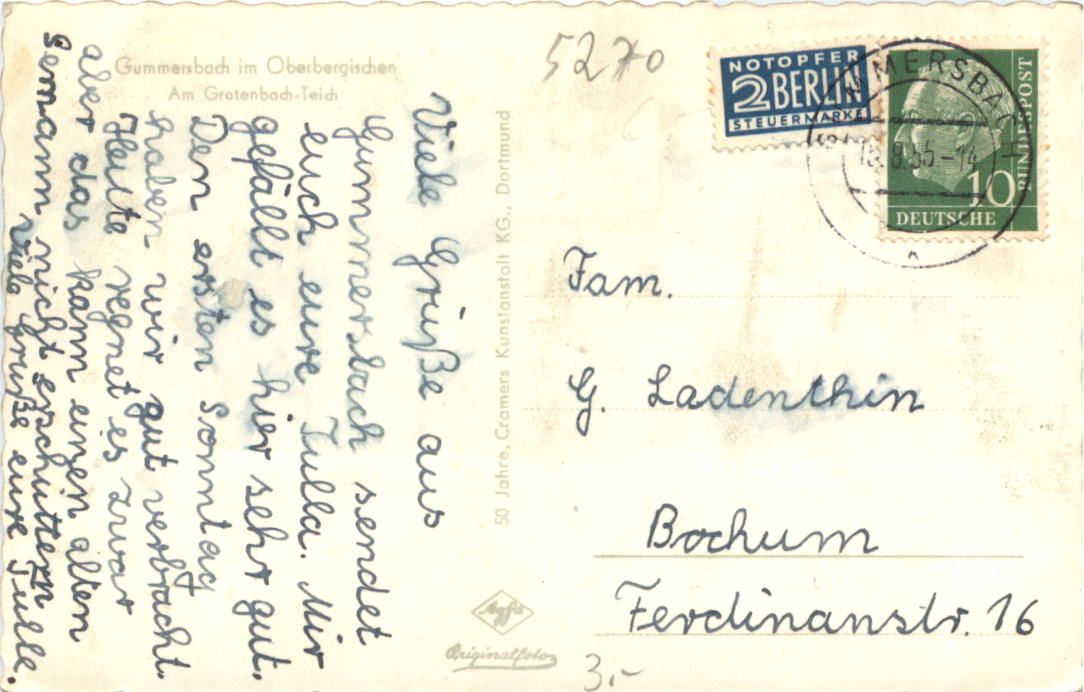 Gummersbach im Oberbergischen
Am Grotenbach-Teich
Viele Grüße aus
Gummersbach sendet
euch eure Tulla. Mir
gefällt es hier sehr gut.
Den ersten Sonntag
haben wir gut verbracht.
Heute regnet es zwar
aber das kann einen alten
Semann nicht erschüttern
viele Grüße eure Tulla.
50 Jahre, Cramers Kunstanstalt KG., Dortmund
Agfa
Originalfoto
5270
NOTOPFER
2 BERLIN
STEUERMARKE
MMERSBAC
.8.55-14
10
DEUTSCHE
BUNDESPOST
Fam.
G. Ladenthin
Bochum
Ferdinanstr. 16
3,-